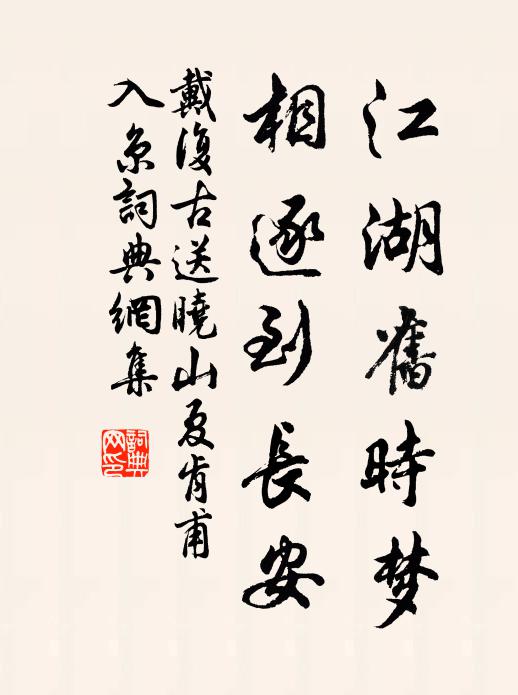 江湖舊時梦
相逐到長安
戴復古送曉山夏肯甫
入京詞典網集
詞典网印